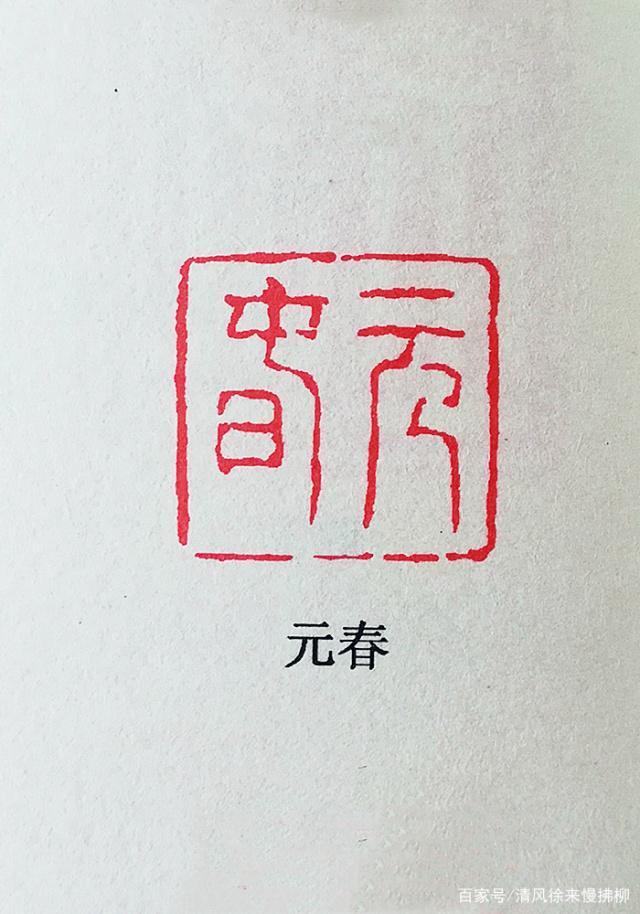 元春
元春
百家号/清风徐来慢拂柳